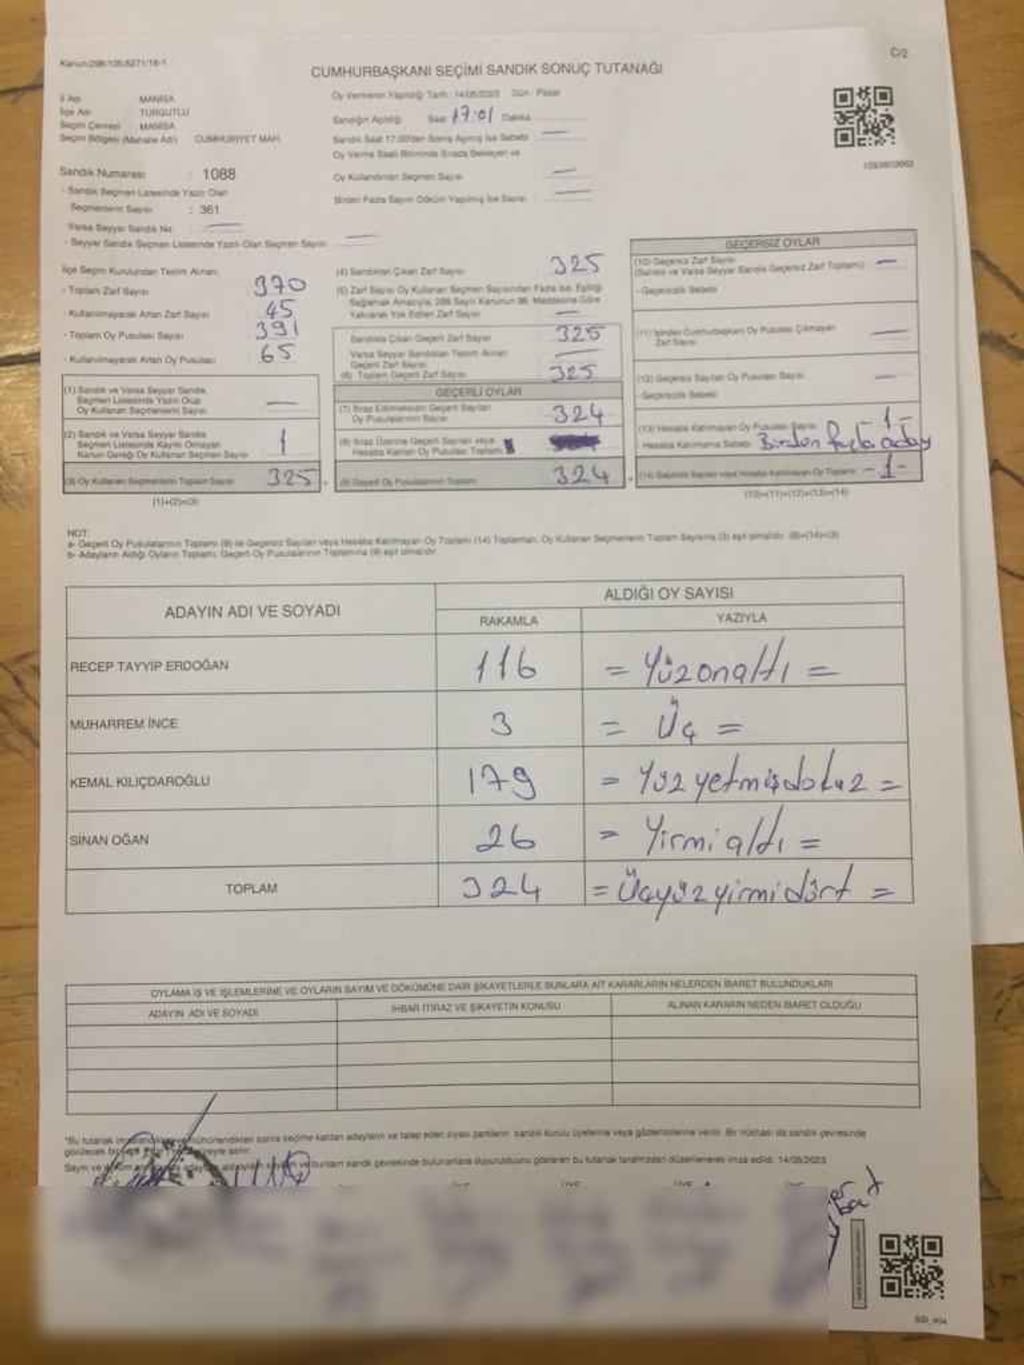 Kanun:298/105,6271/16-1
C/2
CUMHURBAŞKANI SEÇİMİ SANDIK SONUÇ TUTANAĞI
İl Adı MANİSA
İlçe Adı TURGUTLU
Seçim Çevresi MANİSA
Seçim Bölgesi (Mahalle Adı) CUMHURİYET MAH.
Oy Vermenin Yapıldığı Tarih : 14/05/2023 Gün : Pazar
Sandığın Açıldığı Saat 17:01 Dakika
Sandık Saat 17.00'den Sonra Açılmış İse Sebebi
Oy Verme Saati Bitiminde Sırada Bekleyen ve
Oy Kullandırılan Seçmen Sayısı
Birden Fazla Sayım Döküm Yapılmış İse Sayısı
Sandık Numarası : 1088
- Sandık Seçmen Listesinde Yazılı Olan
Seçmenlerin Sayısı : 361
Varsa Seyyar Sandık No
- Seyyar Sandık Seçmen Listesinde Yazılı Olan Seçmen Sayısı
İlçe Seçim Kurulundan Teslim Alınan;
- Toplam Zarf Sayısı 370
- Kullanılmayarak Artan Zarf Sayısı 45
- Toplam Oy Pusulası Sayısı 391
- Kullanılmayarak Artan Oy Pusulası 65
(1) Sandık ve Varsa Seyyar Sandık
Seçmen Listesinde Yazılı Olup
Oy Kullanan Seçmenlerin Sayısı —
(2) Sandık ve Varsa Seyyar Sandık
Seçmen Listesinde Kaydı Olmayan
Kanun Gereği Oy Kullanan Seçmen Sayısı 1
(3) Oy Kullanan Seçmenlerin Toplam Sayısı 325
(1)+(2)=(3)
(4) Sandıktan Çıkan Zarf Sayısı 325
(5) Zarf Sayısı Oy Kullanan Seçmen Sayısından Fazla ise, Eşitliği
Sağlamak Amacıyla, 298 Sayılı Kanunun 98. Maddesine Göre
Yakılarak Yok Edilen Zarf Sayısı —
Sandıkta Çıkan Geçerli Zarf Sayısı 325
Varsa Seyyar Sandıktan Teslim Alınan
Geçerli Zarf Sayısı —
(6) Toplam Geçerli Zarf Sayısı 325
GEÇERLİ OYLAR
(7) İtiraz Edilmeksizin Geçerli Sayılan
Oy Pusulalarının Sayısı 324
(8) İtiraz Üzerine Geçerli Sayılan veya
Hesaba Katılan Oy Pusulası Toplamı
(9) Geçerli Oy Pusulalarının Toplamı 324
GEÇERSİZ OYLAR
(10) Geçersiz Zarf Sayısı —
(Sandık ve Varsa Seyyar Sandık Geçersiz Zarf Toplamı)
- Geçersizlik Sebebi
(11) İçinden Cumhurbaşkanı Oy Pusulası Çıkmayan
Zarf Sayısı —
(12) Geçersiz Sayılan Oy Pusulası Sayısı —
- Geçersizlik Sebebi
(13) Hesaba Katılmayan Oy Pusulası Sayısı 1-
Hesaba Katılmama Sebebi Birden fazla aday
(14) Geçersiz Sayılan veya Hesaba Katılmayan Oy Toplamı -1-
(10)+(11)+(12)+(13)=(14)
NOT:
a- Geçerli Oy Pusulalarının Toplamı (9) ile Geçersiz Sayılan veya Hesaba Katılmayan Oy Toplamı (14) Toplamları, Oy Kullanan Seçmenlerin Toplam Sayısına (3) eşit olmalıdır. (9)+(14)=(3)
b- Adayların Aldığı Oyların Toplamı, Geçerli Oy Pusulalarının Toplamına (9) eşit olmalıdır.
ADAYIN ADI VE SOYADI ALDIĞI OY SAYISI
RAKAMLA YAZIYLA
RECEP TAYYİP ERDOĞAN 116 = Yüzonaltı =
MUHARREM İNCE 3 = Üç =
KEMAL KILIÇDAROĞLU 179 = Yüzyetmişdokuz =
SİNAN OĞAN 26 = Yirmialtı =
TOPLAM 324 = Üçyüzyirmidört =
OYLAMA İŞ VE İŞLEMLERİNE VE OYLARIN SAYIM VE DÖKÜMÜNE DAİR ŞİKAYETLERLE BUNLARA AİT KARARLARIN NELERDEN İBARET BULUNDUKLARI
ADAYIN ADI VE SOYADI İHBAR İTİRAZ VE ŞİKAYETİN KONUSU ALINAN KARARIN NEDEN İBARET OLDUĞU
14/05/2023